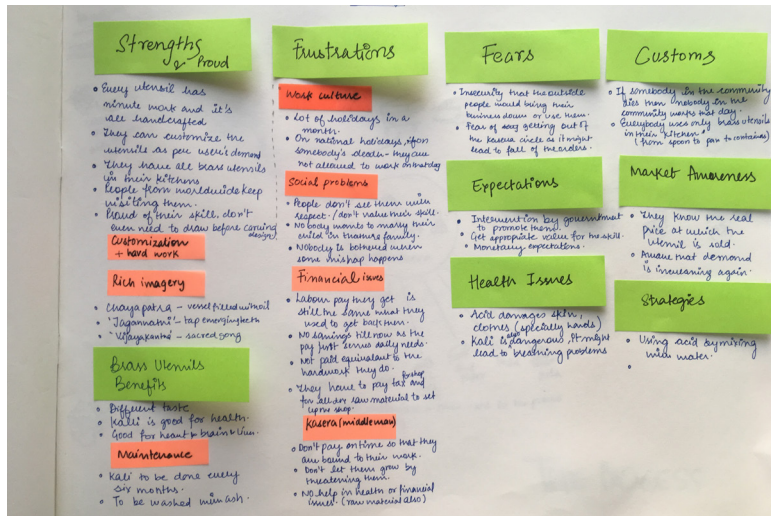 Strengths
& Proud
• Every utensil has
minute work and it's
all handcrafted
• They can customize the
utensils as per user's demand
• They have all brass utensils
in their kitchens
• People from worldwide keep
visiting them.
• Proud of their skill, don't
even need to draw before carving
design
Customization
+ hard work
Rich imagery
• Chayapatra – vessel filled with oil
• "Jagannathi" – tap emerging
• "Vijayakantha" – sacred gong
Brass Utensils
Benefits
• Different taste
• Kalli is good for health.
• Good for heart & brain & liver.
Maintenance
• Kali to be done every
six months.
• To be washed with ash.
Frustrations
Work culture
• Lot of holidays in a
month.
• On national holidays, if on
somebody's death – they are
not allowed to work on that day
Social problems
• People don't see them with
respect. / don't value their skill.
• Nobody wants to marry their
child in thathera family.
• Nobody is bothered when
some mishap happens
Financial issues
• Labour pay they get is
still the same what they
used to get back then.
• No savings till now as the
pay just serves daily needs.
• Not paid equivalent to the
hardwork they do.
• They have to pay tax for shop and
for all dry raw material to set
up the shop.
Kasera (middleman)
• Don't pay on time so that they
are bound to their work.
• Don't let them grow by
threatening them.
• No help in health or financial
issues. (raw material also)
Fears
• Insecurity that the outside
people would bring their
business down or use them.
• Fear of getting out of
the kasera circle as it might
lead to fall of the orders.
Expectations
• Intervention by government
to promote them.
• Get appropriate value for the skill.
• Monetary expectations.
Health Issues
• Acid damages skin,
clothes (specially hands)
• Kali is dangerous, it might
lead to breathing problems
Customs
• If somebody in the community
dies then nobody in the
community works that day.
• Everybody uses only brass utensils
in their kitchen
(from spoon to pan to container)
Market Awareness
• They know the real
price at which the
utensil is sold.
• Aware that demand
is increasing again.
Strategies
• Using acid by mixing
with water.
•